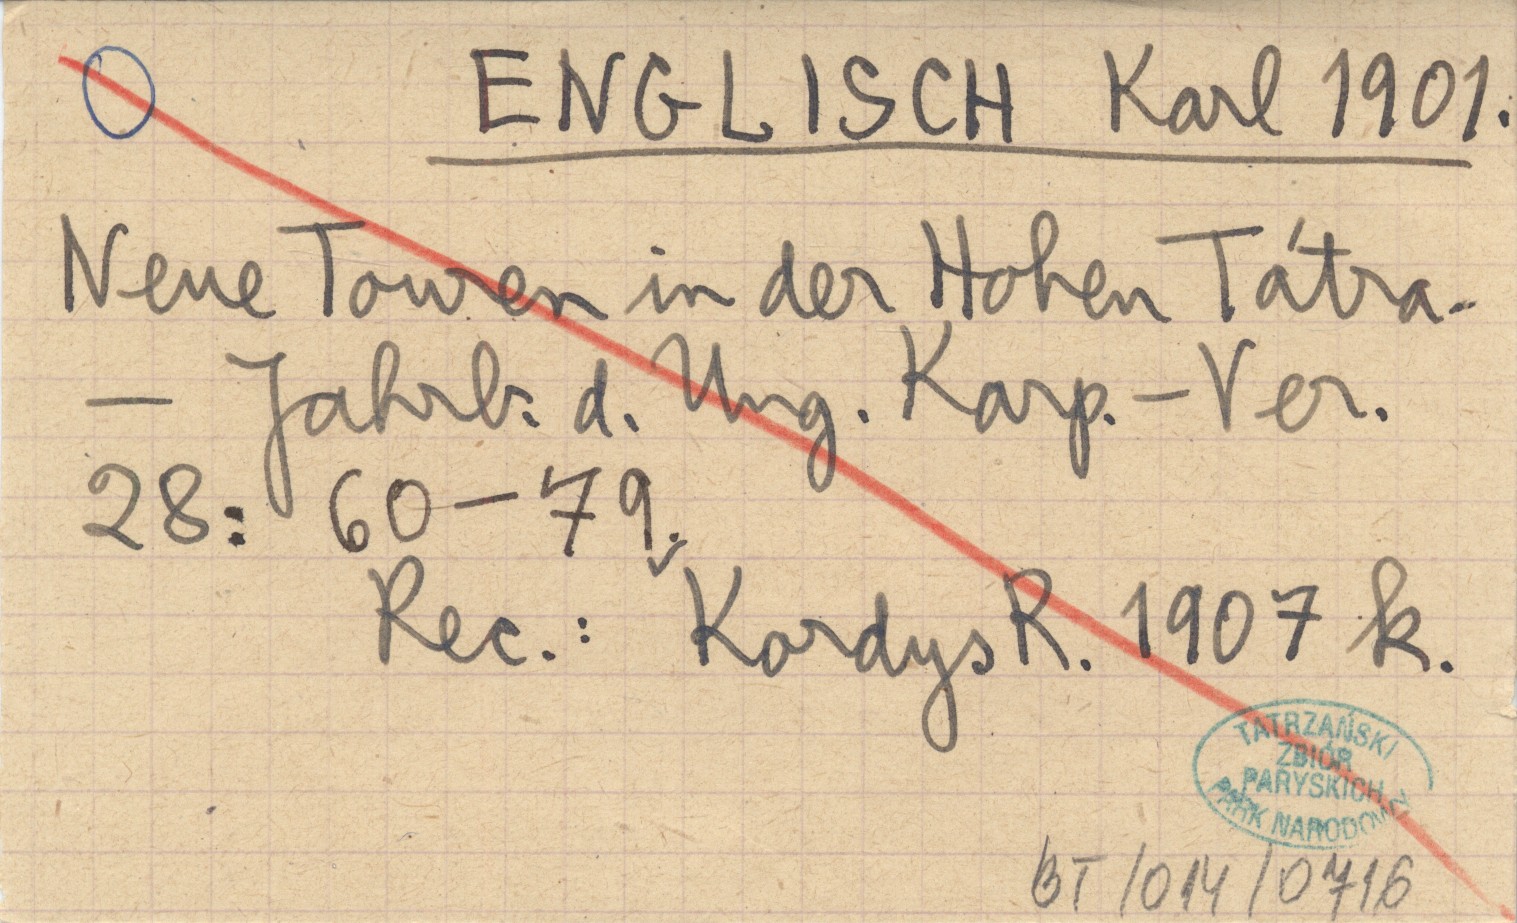 ENGLISCH Karl 1901.
Neue Touren in der Hohen Tátra.
— Jahrb. d. Ung. Karp.-Ver.
28: 60-79.
Rec.: Kordys R. 1907 k.
TATRZAŃSKI
ZBIÓR
PARYSKICH
PARK NARODOWY
BT/014/0716